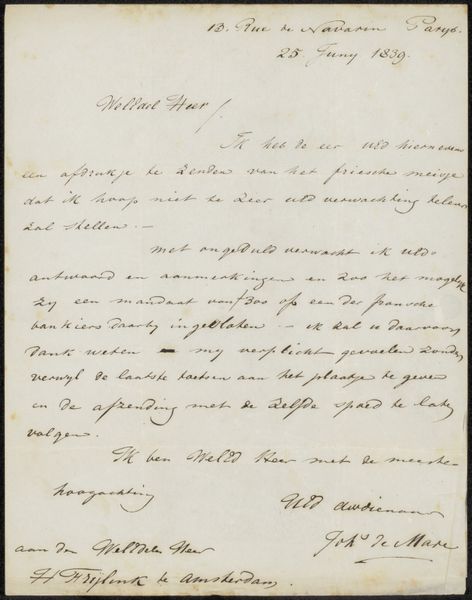 13. Rue de Navarin Parys.
25. Juny 1839.
WelEdel Heer /.
Ik heb de eer UEd hiernevens
een afdrukje te zenden van het friesche meisje
dat ik hoop niet te zeer UEd verwachting teleur
zal stellen. —
met ongeduld verwacht ik UEds
antwoord en aanmerkingen en zoo het mogelyk
zy een mandaat van f 300 op een der fransche
bankiers daarby ingesloten — ik zal u daarvoor
dank weten — my verplicht gevoelen zonder
verwyl de laatste toetsen aan het plaatje te geven
en de afzending met de zelfde spoed te laten
volgen.
Ik ben WelEd Heer met de meeste
hoogachting
UEd dwdienaar
Johs de Mare
aan den WelEdelen Heer
H Frijlink te Amsterdam.